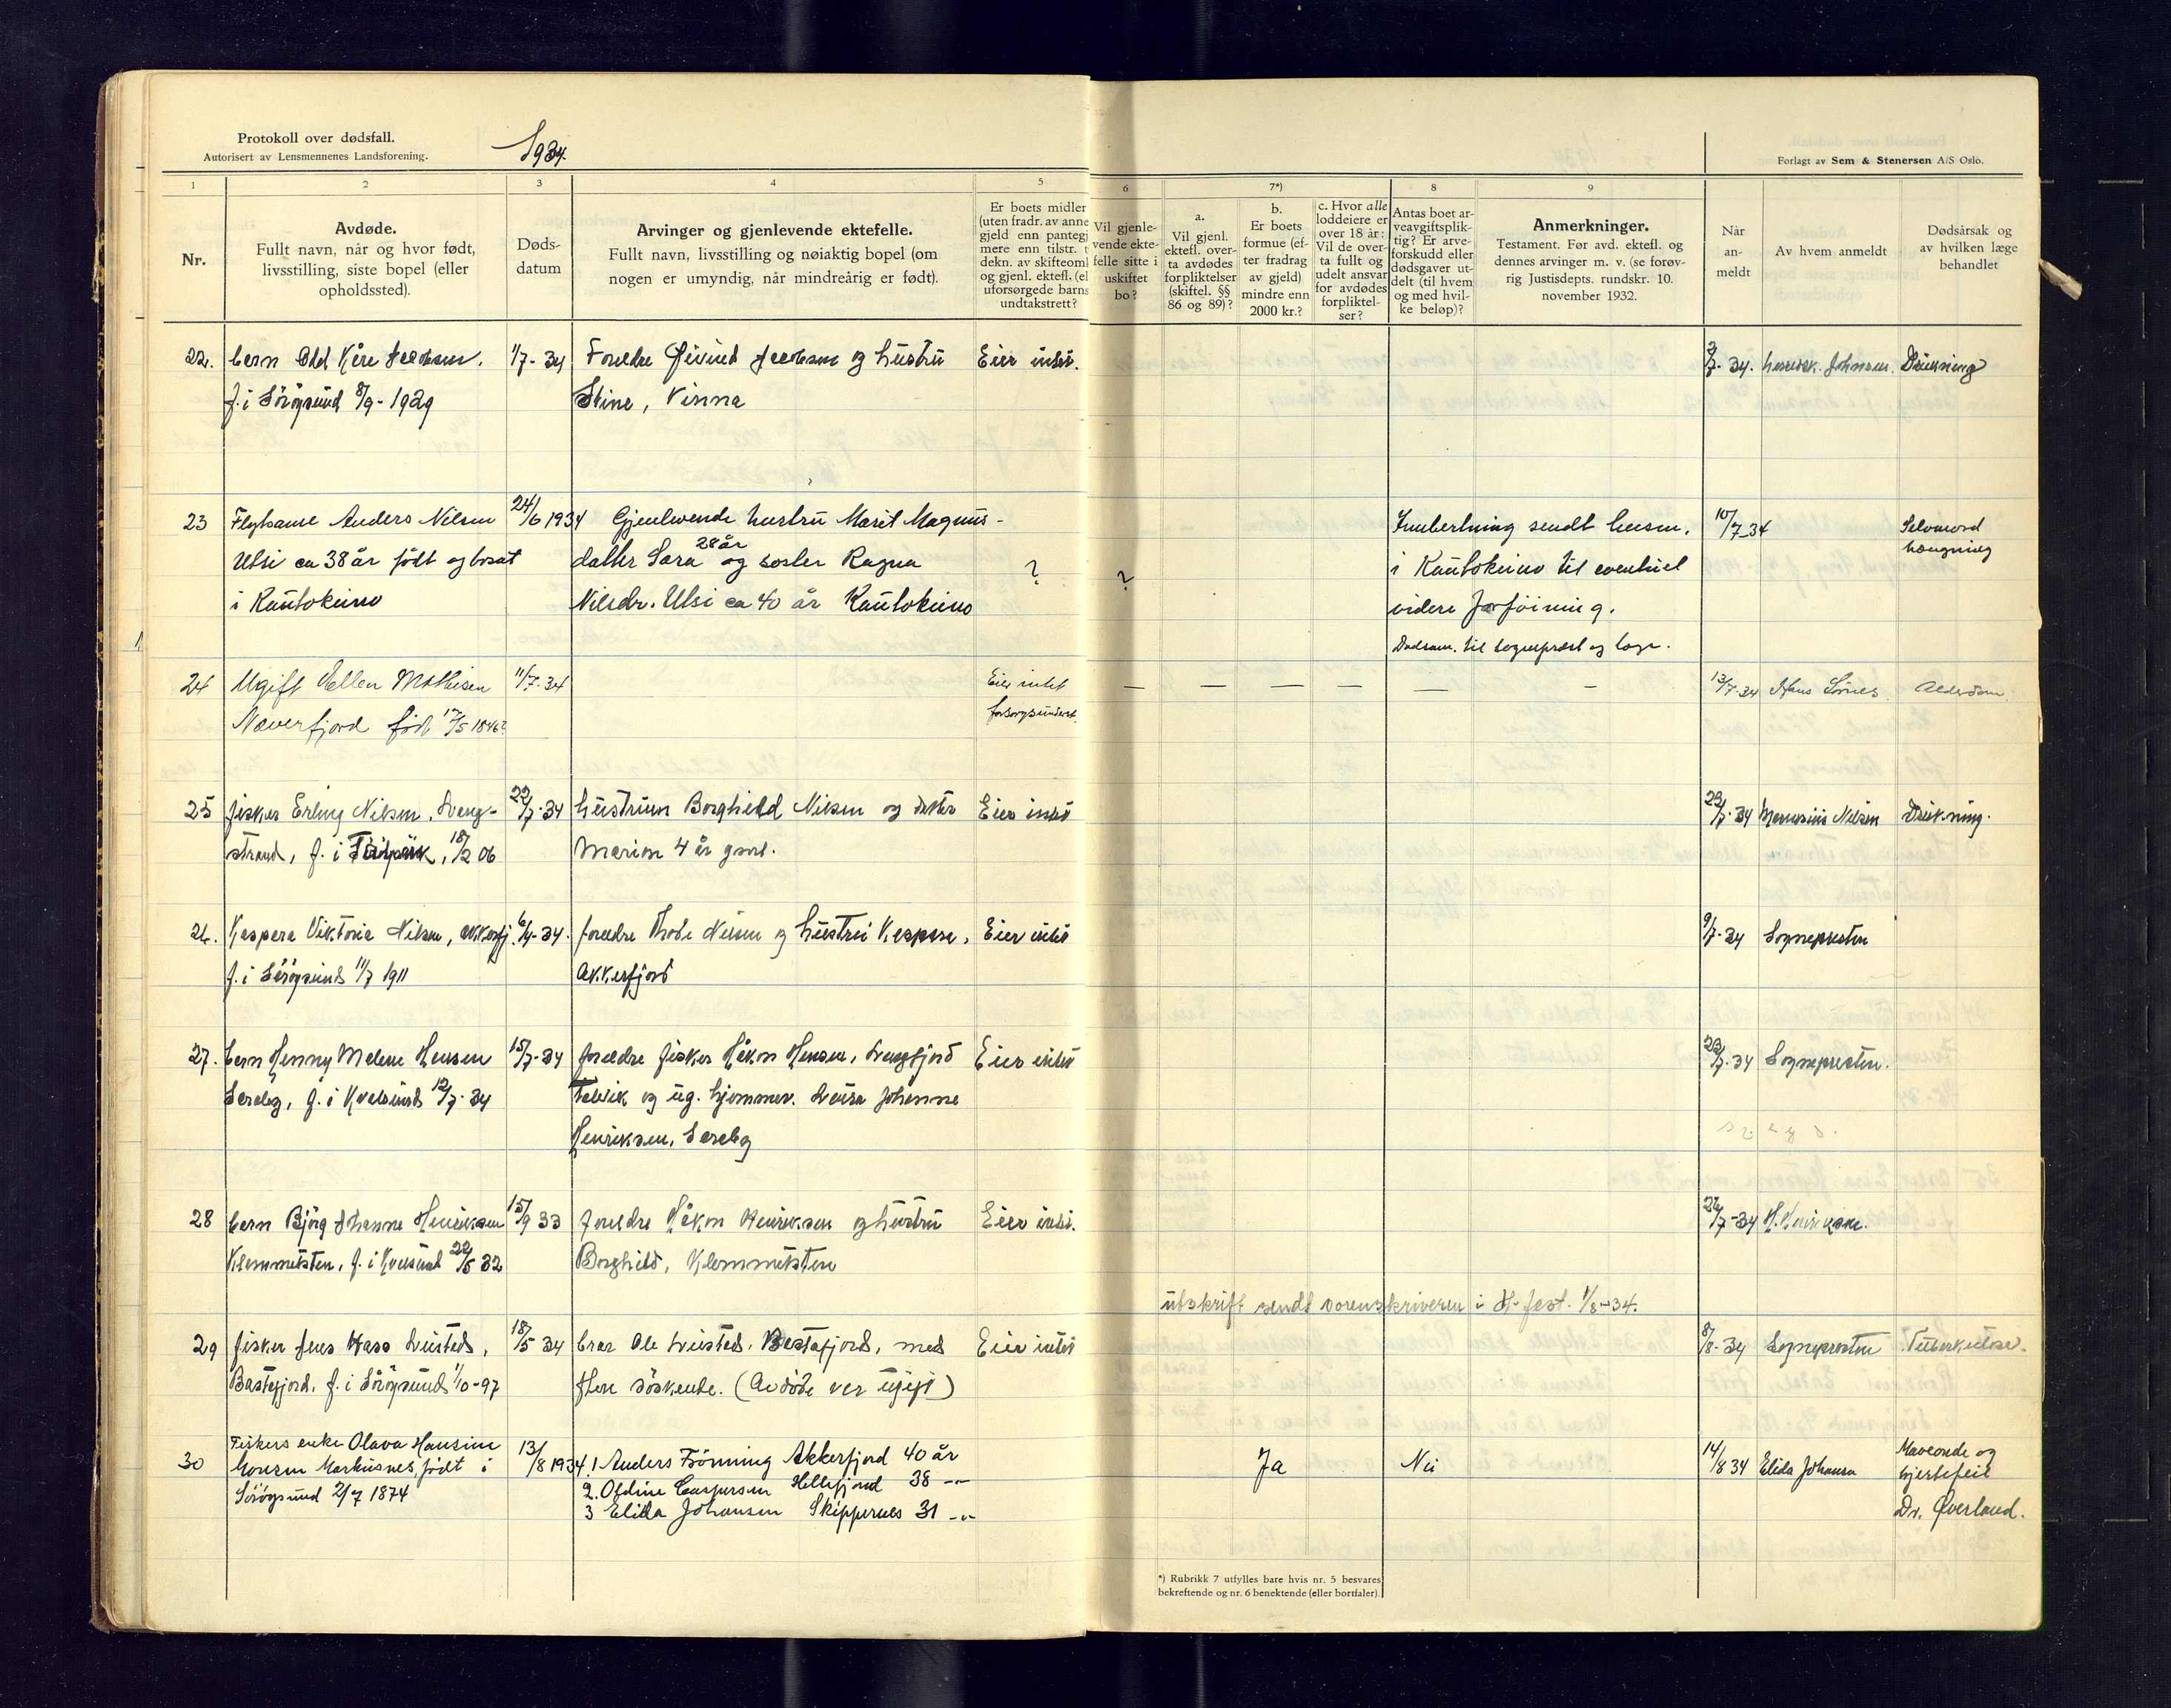 Protokoll over dødsfall.
Autorisert av Lensmennenes Landsforening.
1934.
Forlagt av Sem & Stenersen A/S Oslo.
1 2 3 4 5 6 7*) 8 9
Nr.
Avdøde.
Fullt navn, når og hvor født,
livsstilling, siste bopel (eller
opholdssted).
Døds-
datum
Arvinger og gjenlevende ektefelle.
Fullt navn, livsstilling og nøiaktig bopel (om
nogen er umyndig, når mindreårig er født).
Er boets midler
(uten fradr. av anne
gjeld enn pantegj
mere enn tilstr. t
dekn. av skifteoml
og gjenl. ektef. (el
uforsørgede barns
undtakstrett?
Vil gjenle-
vende ekte-
felle sitte i
uskiftet
bo?
a.
Vil gjenl.
ektefl. over-
ta avdødes
forpliktelser
(skiftel. §§
86 og 89)?
b.
Er boets
formue (ef-
ter fradrag
av gjeld)
mindre enn
2000 kr.?
c. Hvor alle
loddeiere er
over 18 år:
Vil de over-
ta fullt og
udelt ansvar
for avdødes
forpliktel-
ser?
Antas boet ar-
veavgiftsplik-
tig? Er arve-
forskudd eller
dødsgaver ut-
delt (til hvem
og med hvil-
ke beløp)?
Anmerkninger.
Testament. Før avd. ektefl. og
dennes arvinger m. v. (se forøv-
rig Justisdepts. rundskr. 10.
november 1932.
Når
an-
meldt
Av hvem anmeldt
Dødsårsak og
av hvilken læge
behandlet
22. barn Odd Kåre Jacobsen, 1/7-34 Foreldre Øivind Jacobsen og hustru Eier intet. 3/7-34. Johnsen. Drukning
f. i Sörögsund 8/9-1929 Stine, Vinna
23 Flytsame Anders Nilsen 24/6 1934 Gjenlevende hustru Marit Magnus- Innberetning sendt lensm. 10/7-34 Selvmord
Utsi ca 38 år født og bosat datter Sara 28 år og søster Ragna ? ? i Kautokeino til eventuel hængning
i Kautokeino Nilsdr. Utsi ca 40 år Kautokeino videre forföining.
Dødsanm. til sogneprest og læge.
24 Ugift Ellen Mathisen 11/7-34 Eier intet — — — — — – 13/7-34 Hans Sørnes Alderdom.
Næverfjord født 17/5 1846? forsorgsunderst.
25 fisker Erling Nilsen, Lang- 22/7-34 hustruen Borghild Nilsen og datter Eier intet 23/7-34 Nilsen Drukning.
strand, f. i 18/2 06 Marion 4 år gml.
26. Kaspara Viktoria Nilsen, Akkarfj. 6/4-34. foreldre Nilsen og hustru Kaspara, Eier intet 9/7-34 Sognepresten
f. i Sörögsund 11/7 1911 Akkarfjord
27. barn Henny Malene Hansen 15/7-34 foreldre fisker Håkon Hansen, Langfjord Eier intet 23/7-34 Sognepresten.
f. i Kvalsund 12/7-34 Talvik og ug. hjemmev. Laura Johanne
Henriksen,
28 barn Björg Johanne Henriksen 15/9 33 foreldre Håkon Henriksen og hustru Eier intet. 26/7-34 H. Henriksen.
Klemmetsten, f. i Kvalsund 22/5 32 Borghild, Klemmetsten
utskrift sendt sorenskriveren i H-fest. 1/8-34.
29 fisker Jens Hass Lusted, 18/5 34 bror Ole Lusted, Bastafjord, med Eier intet 8/8-34 Sognepresten Tuberkulose.
Bastafjord, f. i Sörögsund 1/10-97 flere söskende. (Avdöde var ugift)
30 Fiskers enke Olava Hansine 13/8 1934 1 Anders Frönning Akkerfjord 40 år Ja Nei 14/8 34 Elida Johansen Mavesonde og
Monsen Markusnes, født i 2. Oldine Caspersen Hellefjord 38 -"- hjertefeil
Sörögsund 2/7 1874 3 Elida Johansen Skippernes 31 -"- Dr. Øverland.
*) Rubrikk 7 utfylles bare hvis nr. 5 besvares
bekreftende og nr. 6 benektende (eller bortfaler)